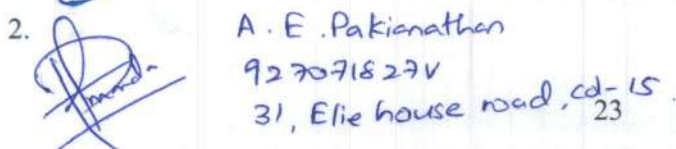 2.
A. E. Pakianathan
927071827V
31, Elie house road, cd-15.
23